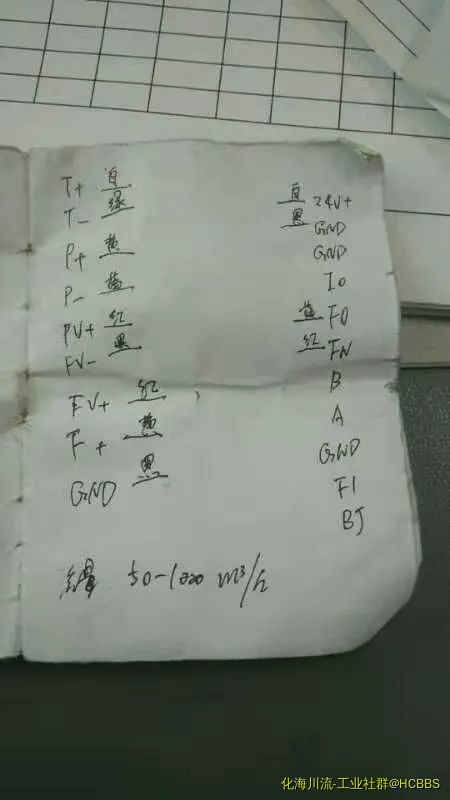 T+ 白
T- 绿
P+ 黄
P-
PV+ 红
PV- 黑
FV+ 红
F+ 黄
GND 黑
白 24V+
黑 GND
GND
I0
黄 F0
红 FN
B
A
GND
F1
BJ
50-1000 m³/h
化海川流-工业社群@HCBBS